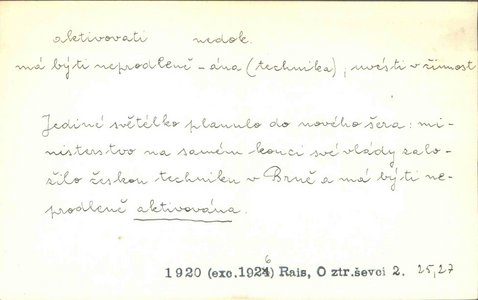 aktivovati nedok.
má býti neprodleně – ána (technika), uvésti v činnost
Jediné světélko planulo do nového šera: mi-
nisterstvo na samém konci své vlády zalo-
žilo českou techniku v Brně a má býti ne-
prodleně aktivována.
1920 (exc. 1926) Rais, O ztr. ševci 2. 25,27